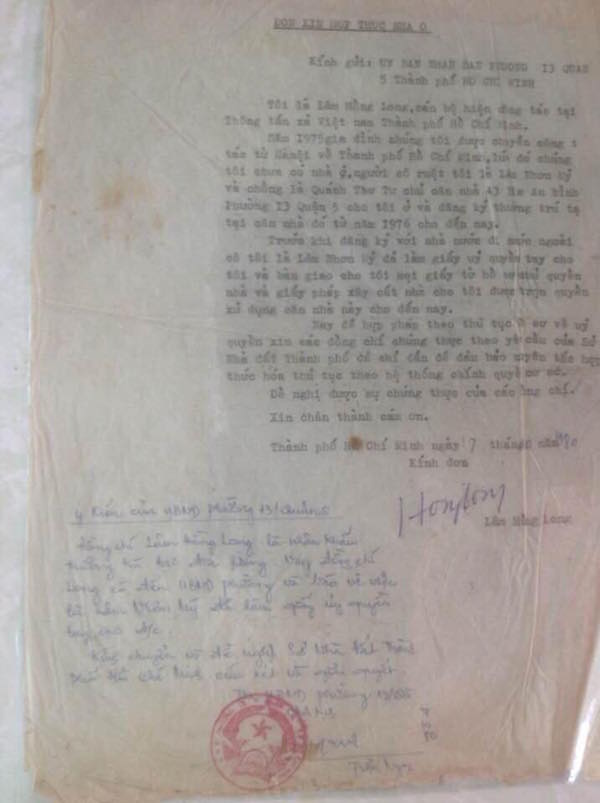 ĐƠN XIN HỢP THỨC NHÀ Ở
Kính gửi: UY BAN NHAN DAN PHUONG 13 QUAN
5 Thành phố HO CHI MINH
Tôi là Lâm Hồng Long, cán bộ hiện công tác tại
Thông tấn xã Việt nam Thành phố Hồ Chí Minh.
Năm 1975 gia đình chúng tôi được chuyển công
tác từ Hànội về Thành phố Hồ Chí Minh, lúc đó chúng
tôi chưa có nhà ở, người cô ruột tôi là Lâm Nhơn Mỹ
và chồng là Quách Thơ Tư chủ căn nhà 43 an bình
Phường 13 Quận 5 cho tôi ở và đăng ký thường trú tạ
tại căn nhà đó từ năm 1976 cho đến nay.
Trước khi đăng ký với nhà nước đi nước ngoài
cô tôi là Lâm Nhơn Mỹ đã làm giấy uỷ quyền tay cho
tôi và bàn giao cho tôi mọi giấy tờ hồ sơ chủ quyền
nhà và giấy phép xây cất nhà cho tôi được trọn quyền
xử dụng căn nhà này cho đến nay.
Nay để hợp pháp theo thủ tục hồ sơ về uỷ
quyền xin các đồng chí chứng thực theo yêu cầu của Sở
Nhà đất Thành phố để đảm bảo nguyên tắc hợp
thức hóa thủ tục theo hệ thống chính quyền cơ sở.
Đề nghị được sự chứng thực của các đồng chí.
Xin chân thành cám ơn.
Thành phố Hồ Chí Minh ngày 7 tháng năm
Kính đơn
Lâm Hồng Long
ý kiến của UBND phường 13/quận 5
Đồng chí Lâm Hồng Long là nhân khẩu
thường trú tại địa phương. Nay đồng chí
Long có đến UBND phường và báo về việc
bà Lâm Nhơn Mỹ đã làm giấy ủy quyền
tay cho đ/c.
Kính chuyển và đề nghị Sở Nhà đất Thành
phố Hồ Chí Minh cứu xét và giải quyết.
TM UBND phường 13/Q5